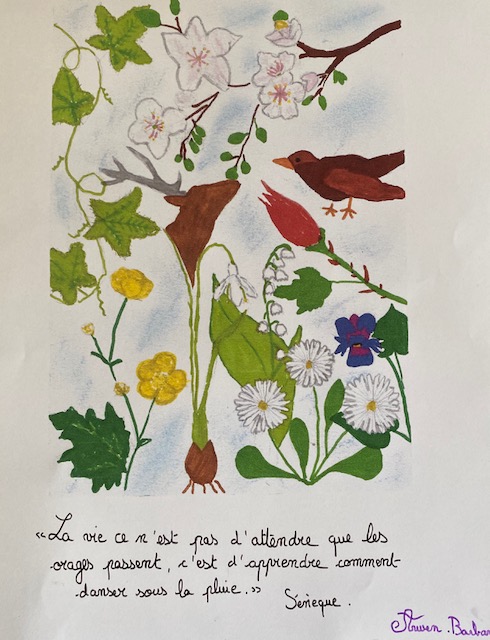 « La vie ce n'est pas d'attendre que les
orages passent, c'est d'apprendre comment
danser sous la pluie. »
Sénèque.